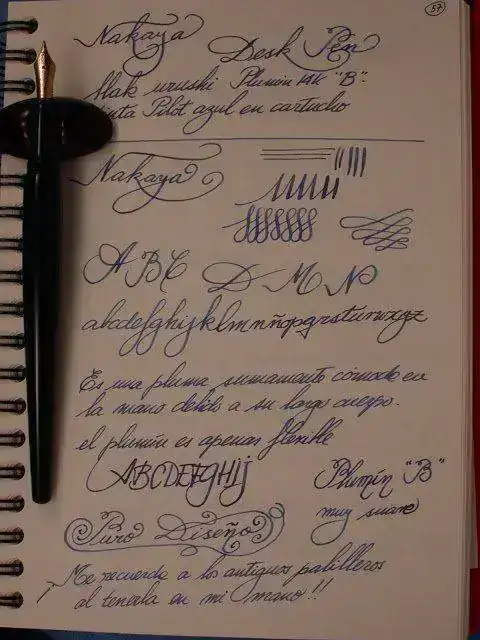 57
Nakaya Desk Pen
Black urushi Plumín 14K "B".
tinta Pilot azul en cartucho
Nakaya
A B C D M N
abcdefghijklmnñopqrstuvwxyz
Es una pluma sumamente cómoda en
la mano debido a su largo cuerpo.
el plumín es apenas flexible
ABCDEFGHIJ
Plumín "B"
muy suave
Puro Diseño
Me recuerda a los antiguos palilleros
al tenerla en mi mano!!